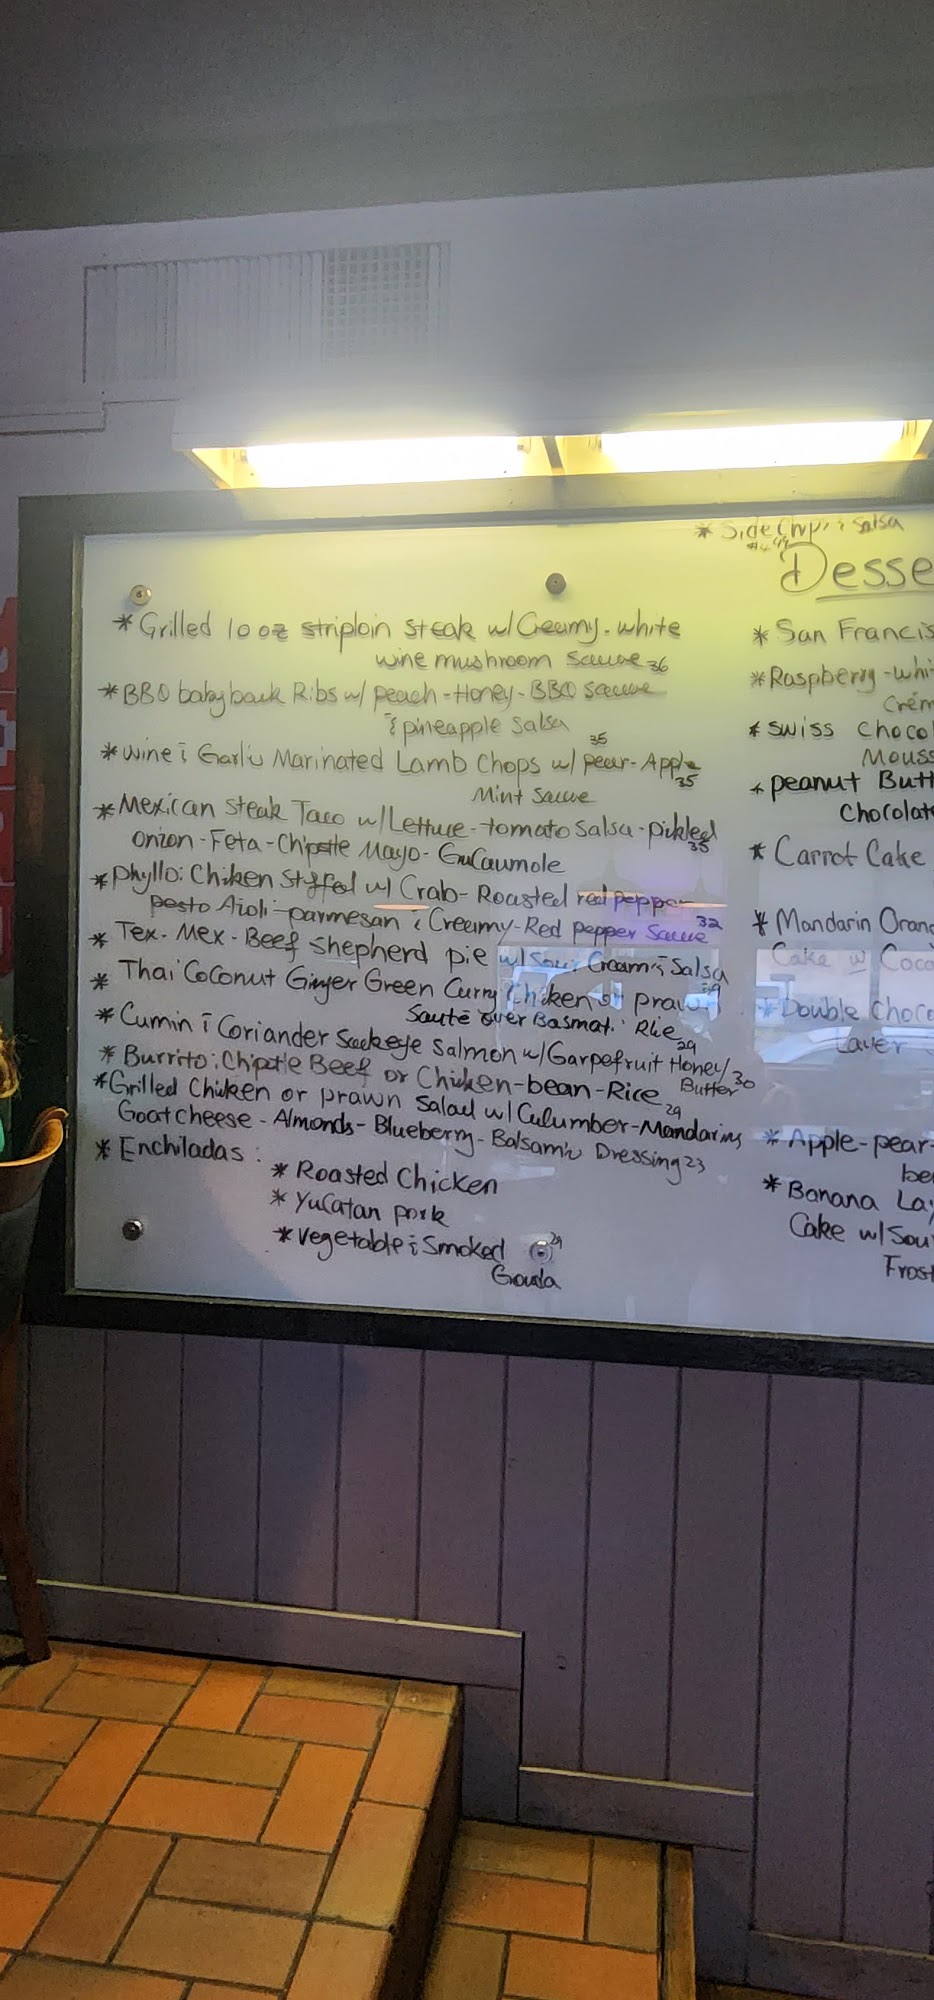 * Grilled 10 oz striploin steak w/ Creamy-white
wine mushroom sauce 36
* BBQ baby back Ribs w/ peach-Honey-BBQ sauce
& pineapple Salsa
35
* wine & Garlic Marinated Lamb Chops w/ pear-Apple
35
Mint Sauce
* Mexican steak Taco w/ Lettuce-tomato salsa-pickled
onion-Feta-Chipotle Mayo-GuCaumole
35
* phyllo: Chicken stuffed w/ Crab-Roasted red pepper
pesto Aioli-parmesan & Creamy-Red pepper Sauce 32
* Tex-Mex-Beef shepherd pie w/ Sour Cream & Salsa
* Thai Coconut Ginger Green Curry Chicken or prawn
Sauté over Basmati Rice 29
* Cumin & Coriander Sockeye Salmon w/ Garpefruit Honey
Butter 30
* Burrito: Chipotle Beef or Chicken-bean-Rice 29
* Grilled Chicken or prawn Salad w/ Cucumber-Mandarins
Goatcheese-Almonds-Blueberry-Balsamic Dressing 23
* Enchiladas:
* Roasted Chicken
* Yucatan pork
* Vegetable & Smoked 29
Gouda
* Side Chips & Salsa
Desse
* San Francis
* Raspberry-whi
Crém
* Swiss Choco
Mouss
* peanut Butt
Chocolat
* Carrot Cake
* Mandarin Oran
Cake w Coco
* Double Choco
Layer
* Apple-pear-
be
* Banana Lay
Cake w/ Sou
Frost